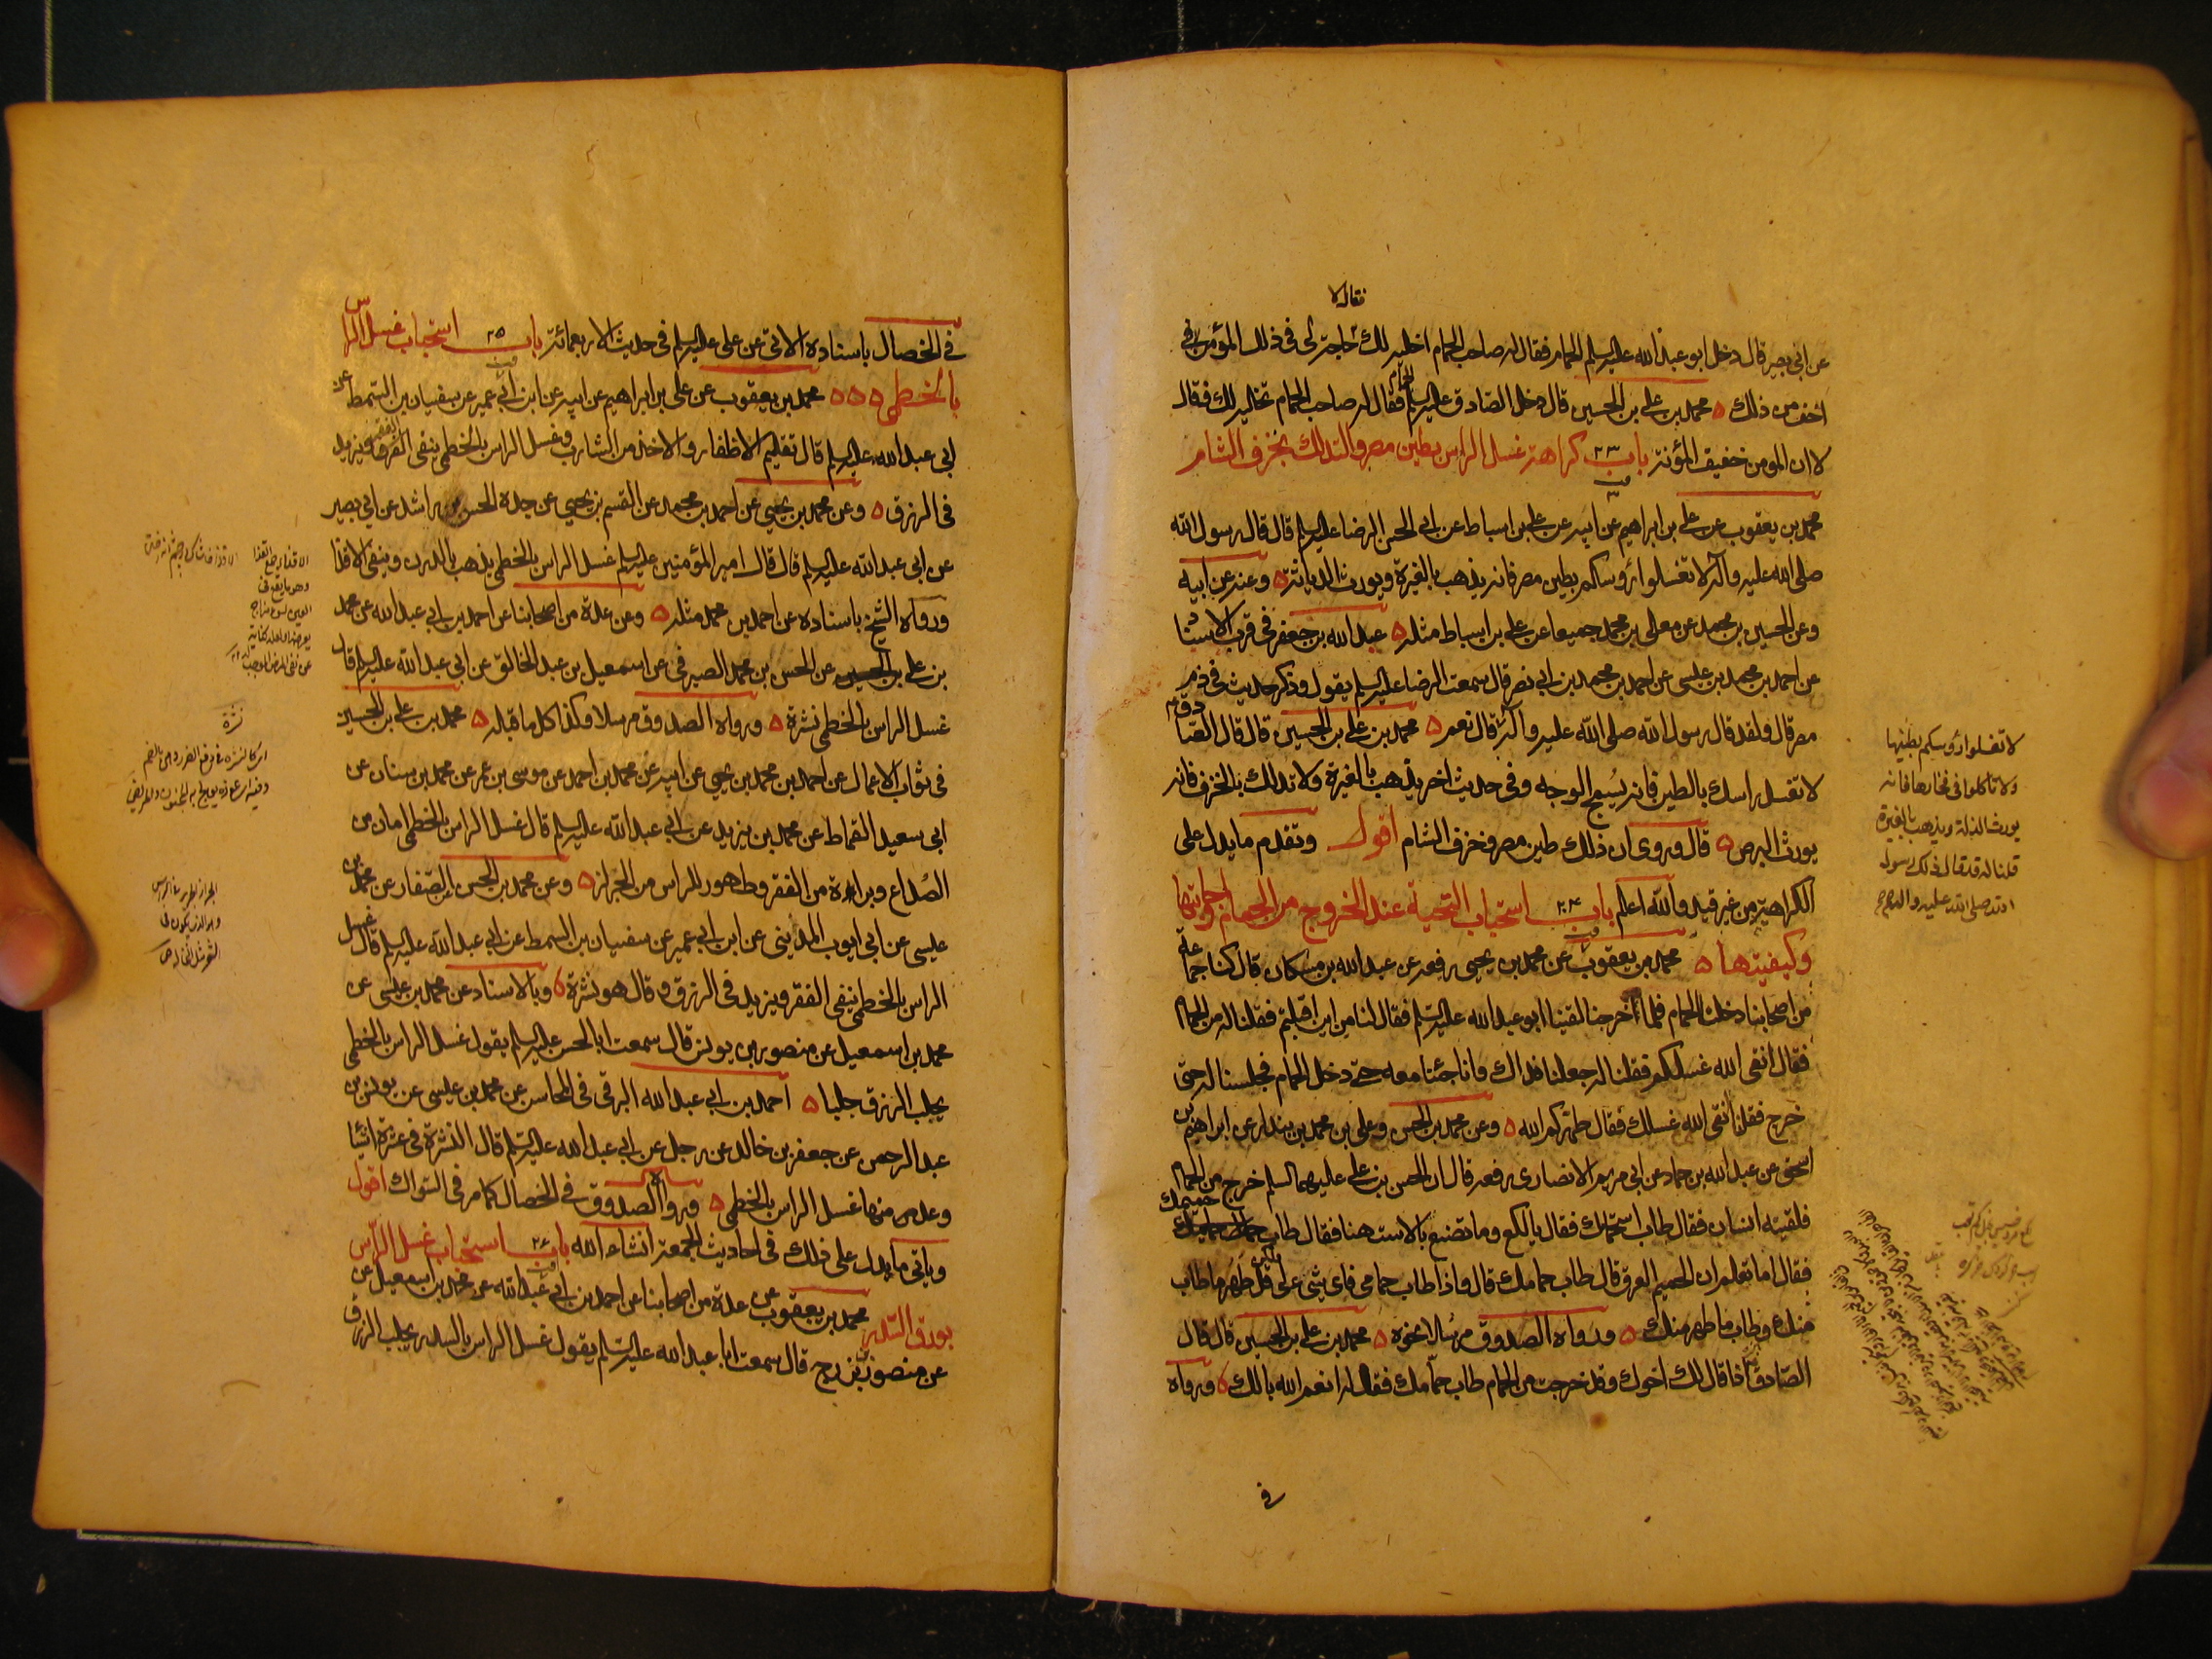 فقال لا
عن ابى بصير قال دخل ابو عبد الله عليه السلم الحمام فقال له صاحب الحمام اخليه لك لا حاجة لى فى ذلك المؤمن
اخف من ذلك محمد بن على بن الحسين قال دخل الصادق عليه السلم الحمام فقال له صاحب الحمام نخليه لك فقال
لا ان المومن خفيف المؤنة باب ٢٣ كراهة غسل الراس بطين مصر والتدلك بخزف الشام
محمد بن يعقوب عن على بن ابراهيم عن ابيه عن على بن اسباط عن ابى الحسن الرضا عليه السلم قال قال رسول الله
صلى الله عليه وآله لا تغسلوا رؤسكم بطين مصر فانه يذهب بالغيرة ويورث الدياثة وعنه عن ابيه
وعن الحسين بن محمد عن معلى بن محمد جميعا عن على بن اسباط مثله عبد الله بن جعفر فى قرب الاسناد
عن احمد بن محمد بن عيسى عن احمد بن محمد بن ابى نصر قال سمعت الرضا عليه السلم يقول وذكر حديث فى ذم
مصر قال ولقد قال رسول الله صلى الله عليه وآله قال نعم محمد بن على بن الحسين قال قال الصادق
لا تغسل راسك بالطين فانه يسمج الوجه وفى حديث اخر يذهب بالغيرة ولا تدلك بالخزف فانه
يورث البرص قال وروى ان ذلك طين مصر وخزف الشام اقول وتقدم ما يدل على
الكراهية من غير قيد والله اعلم باب ٢٤ استحباب التحية عند الخروج من الحمام وجوابها
وكيفيتها محمد بن يعقوب عن محمد بن يحيى رفعه عن عبد الله بن مسكان قال كنا جماعة
من اصحابنا دخلنا الحمام فلما خرجنا لقينا ابو عبد الله عليه السلم فقال لنا من اين اقبلتم فقلنا له من الحمام
فقال انقى الله غسلكم فقلنا له جعلنا فداك وانا جئنا معه حتى دخل الحمام فجلسنا له حتى
خرج فقلنا انقى الله غسلك فقال طهركم الله وعن محمد بن الحسن وعلى بن محمد بن بندار عن ابراهيم بن
اسحق عن عبد الله بن حماد عن ابى مريم الانصارى رفعه قال ان الحسن بن على عليهما السلم خرج من الحمام
فلقيه انسان فقال طاب استحمامك فقال يا لكع وما تصنع بالاست هنا فقال طاب حميمك
فقال اما تعلم ان الحميم العرق قال طاب حمامك قال واذا طاب حمامى فاى شى لى قل طهر ما طاب
منك وطاب ما طهر منك ورواه الصدوق مرسلا نحوه محمد بن على بن الحسين قال قال
الصادق اذا قال لك اخوك وقد خرجت من الحمام طاب حمامك فقل له انعم الله بالك ورواه
فى
لا تغسلوا رؤسكم بطينها
ولا تاكلوا فى فخارها فانه
يورث الذلة ويذهب بالغيرة
قلنا له قد قال ذلك رسول
الله صلى الله عليه واله
فى الخصال باسناده الاتى عن على عليه السلم فى حديث الاربعمائة باب ٢٥ استحباب غسل الراس
بالخطمى محمد بن يعقوب عن على بن ابراهيم عن ابيه عن ابن ابى عمير عن سفيان بن السمط عن
ابى عبد الله عليه السلم قال تقليم الاظفار والاخذ من الشارب وغسل الراس بالخطمى ينفى الفقر ويزيد
فى الرزق وعن محمد بن يحيى عن احمد بن محمد عن القسم بن يحيى عن جده الحسن بن راشد عن ابى بصير
عن ابى عبد الله عليه السلم قال قال امير المؤمنين عليه السلم غسل الراس بالخطمى يذهب بالدرن وينفى الاقذا
ورواه الشيخ باسناده عن احمد بن محمد مثله وعن عدة من اصحابنا عن احمد بن ابى عبد الله عن محمد
بن على عن الحسن بن محمد الصيرفى عن اسمعيل بن عبد الخالق عن ابى عبد الله عليه السلم قال
غسل الراس بالخطمى نشرة ورواه الصدوق مرسلا وكذا كل ما قبله محمد بن على بن الحسين
فى ثواب الاعمال عن احمد بن محمد بن يحيى عن ابيه عن محمد بن احمد عن موسى بن عمر عن محمد بن سنان عن
ابى سعيد القماط عن محمد بن يزيد عن ابى عبد الله عليه السلم قال غسل الراس بالخطمى امان من
الصداع وبراءة من الفقر وطهور للراس من الحزاز وعن محمد بن الحسن الصفار عن محمد بن
عيسى عن ابى ايوب المدينى عن ابن ابى عمير عن سفيان بن السمط عن ابى عبد الله عليه السلم قال غسل
الراس بالخطمى ينفى الفقر ويزيد فى الرزق وقال هو نشرة وبالاسناد عن محمد بن عيسى عن
محمد بن اسمعيل عن منصور بن يونس قال سمعت ابا الحسن عليه السلم يقول غسل الراس بالخطمى
يجلب الرزق جلبا احمد بن ابى عبد الله البرقى فى المحاسن عن محمد بن عيسى عن يونس بن
عبد الرحمن عن جعفر بن خالد عن رجل عن ابى عبد الله عليه السلم قال النشرة فى عشرة اشيا
وعد منها غسل الراس بالخطمى ورواه الصدوق فى الخصال كما مر فى السواك اقول
وياتى ما يدل على ذلك فى احاديث الجمعة انشاء الله باب ٢٦ استحباب غسل الراس
بورق السدر محمد بن يعقوب عن عدة من اصحابنا عن احمد بن ابى عبد الله عن محمد بن اسمعيل عن
عن منصور بزرج قال سمعت ابا عبد الله عليه السلم يقول غسل الراس بالسدر يجلب الرزق
نشرة